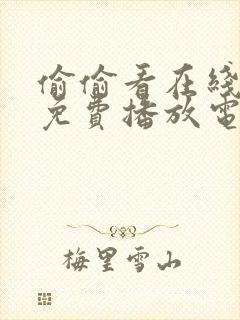 偷偷看在綫
免費播放電
梅里雪山